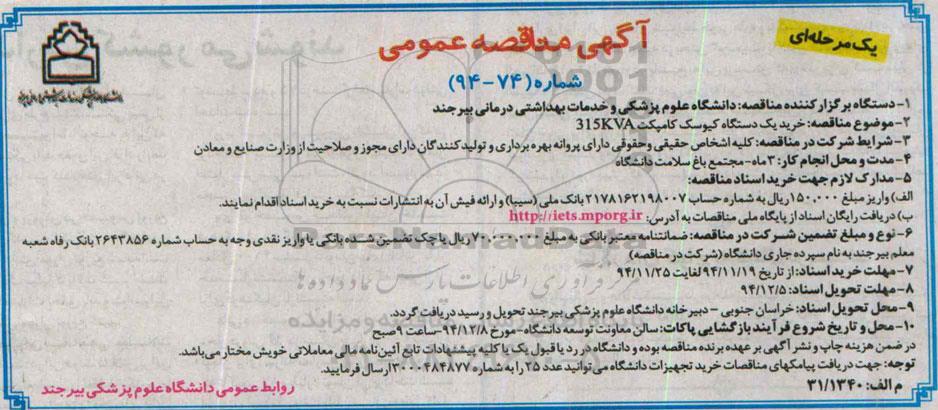 یک مرحله‌ای
آگهی مناقصه عمومی
شماره (۷۴-۹۴)
۱- دستگاه برگزار کننده مناقصه: دانشگاه علوم پزشکی و خدمات بهداشتی درمانی بیرجند
۲- موضوع مناقصه: خرید یک دستگاه کیوسک کامپکت 315KVA
۳- شرایط شرکت در مناقصه: کلیه اشخاص حقیقی و حقوقی دارای پروانه بهره برداری و تولیدکنندگان دارای مجوز و صلاحیت از وزارت صنایع و معادن
۴- مدت و محل انجام کار: ۳ ماه- مجتمع باغ سلامت دانشگاه
۵- مدارک لازم جهت خرید اسناد مناقصه:
الف) واریز مبلغ ۱۵۰,۰۰۰ ریال به شماره حساب ۲۱۷۸۱۶۲۱۹۸۰۰۷ بانک ملی (سیبا) و ارائه فیش آن به انتشارات نسبت به خرید اسناد اقدام نمایند.
ب) دریافت رایگان اسناد از پایگاه ملی مناقصات به آدرس: http://iets.mporg.ir
۶- نوع و مبلغ تضمین شرکت در مناقصه: ضمانتنامه معتبر بانکی به مبلغ ۷۰,۰۰۰,۰۰۰ ریال یا چک تضمین شده بانکی یا واریز نقدی وجه به حساب شماره ۲۶۴۳۸۵۶ بانک رفاه شعبه
معلم بیرجند به نام سپرده جاری دانشگاه (شرکت در مناقصه)
۷- مهلت خرید اسناد: از تاریخ ۹۴/۱۱/۱۹ لغایت ۹۴/۱۱/۲۵
۸- مهلت تحویل اسناد: ۹۴/۱۲/۵
۹- محل تحویل اسناد: خراسان جنوبی - دبیرخانه دانشگاه علوم پزشکی بیرجند تحویل و رسید دریافت گردد.
۱۰- محل و تاریخ شروع فرآیند بازگشایی پاکات: سالن معاونت توسعه دانشگاه- مورخ ۹۴/۱۲/۸- ساعت ۹ صبح
در ضمن هزینه چاپ و نشر آگهی بر عهده برنده مناقصه بوده و دانشگاه در رد یا قبول یک یا کلیه پیشنهادات تابع آئین‌نامه مالی معاملاتی خویش مختار می‌باشد.
توجه: جهت دریافت پیامکهای مناقصات خرید تجهیزات دانشگاه می‌توانید عدد ۲۵ را به شماره ۳۰۰۰۴۸۴۸۷۷ ارسال فرمایید.
م الف: ۳۱/۱۳۴۰
روابط عمومی دانشگاه علوم پزشکی بیرجند
ParsNamadData
مرکز فرآوری اطلاعات پارس نماد داده ها